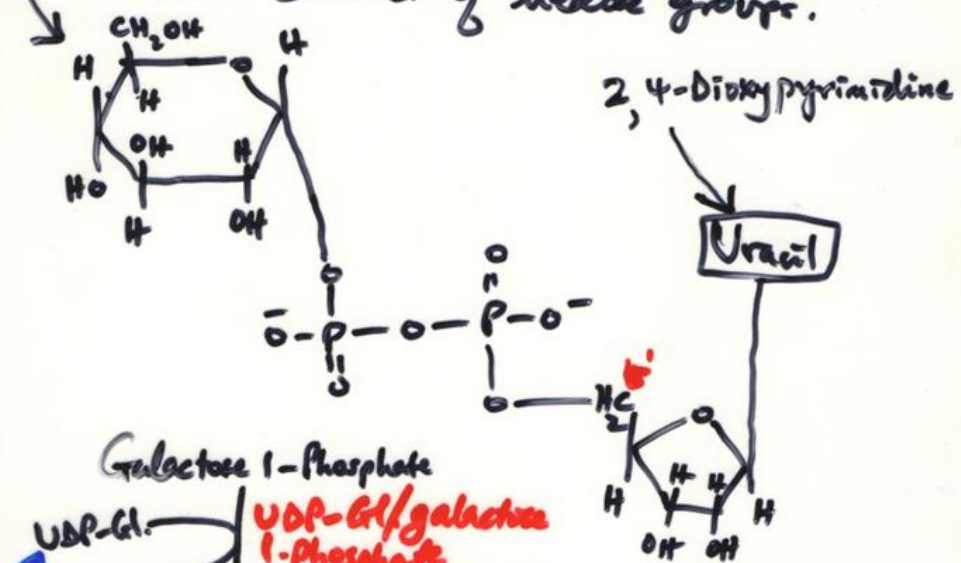 of groups.
CH2OH
H O H
H
OH H
HO
H OH
2, 4-Dioxypyrimidine
Uracil
O
O
-O-P-O-P-O-
O
O H2C
O
H H H H
OH OH
Galactose 1-Phosphate
UDP-Gl.
UDP-Gl/galactose
1-Phosphate